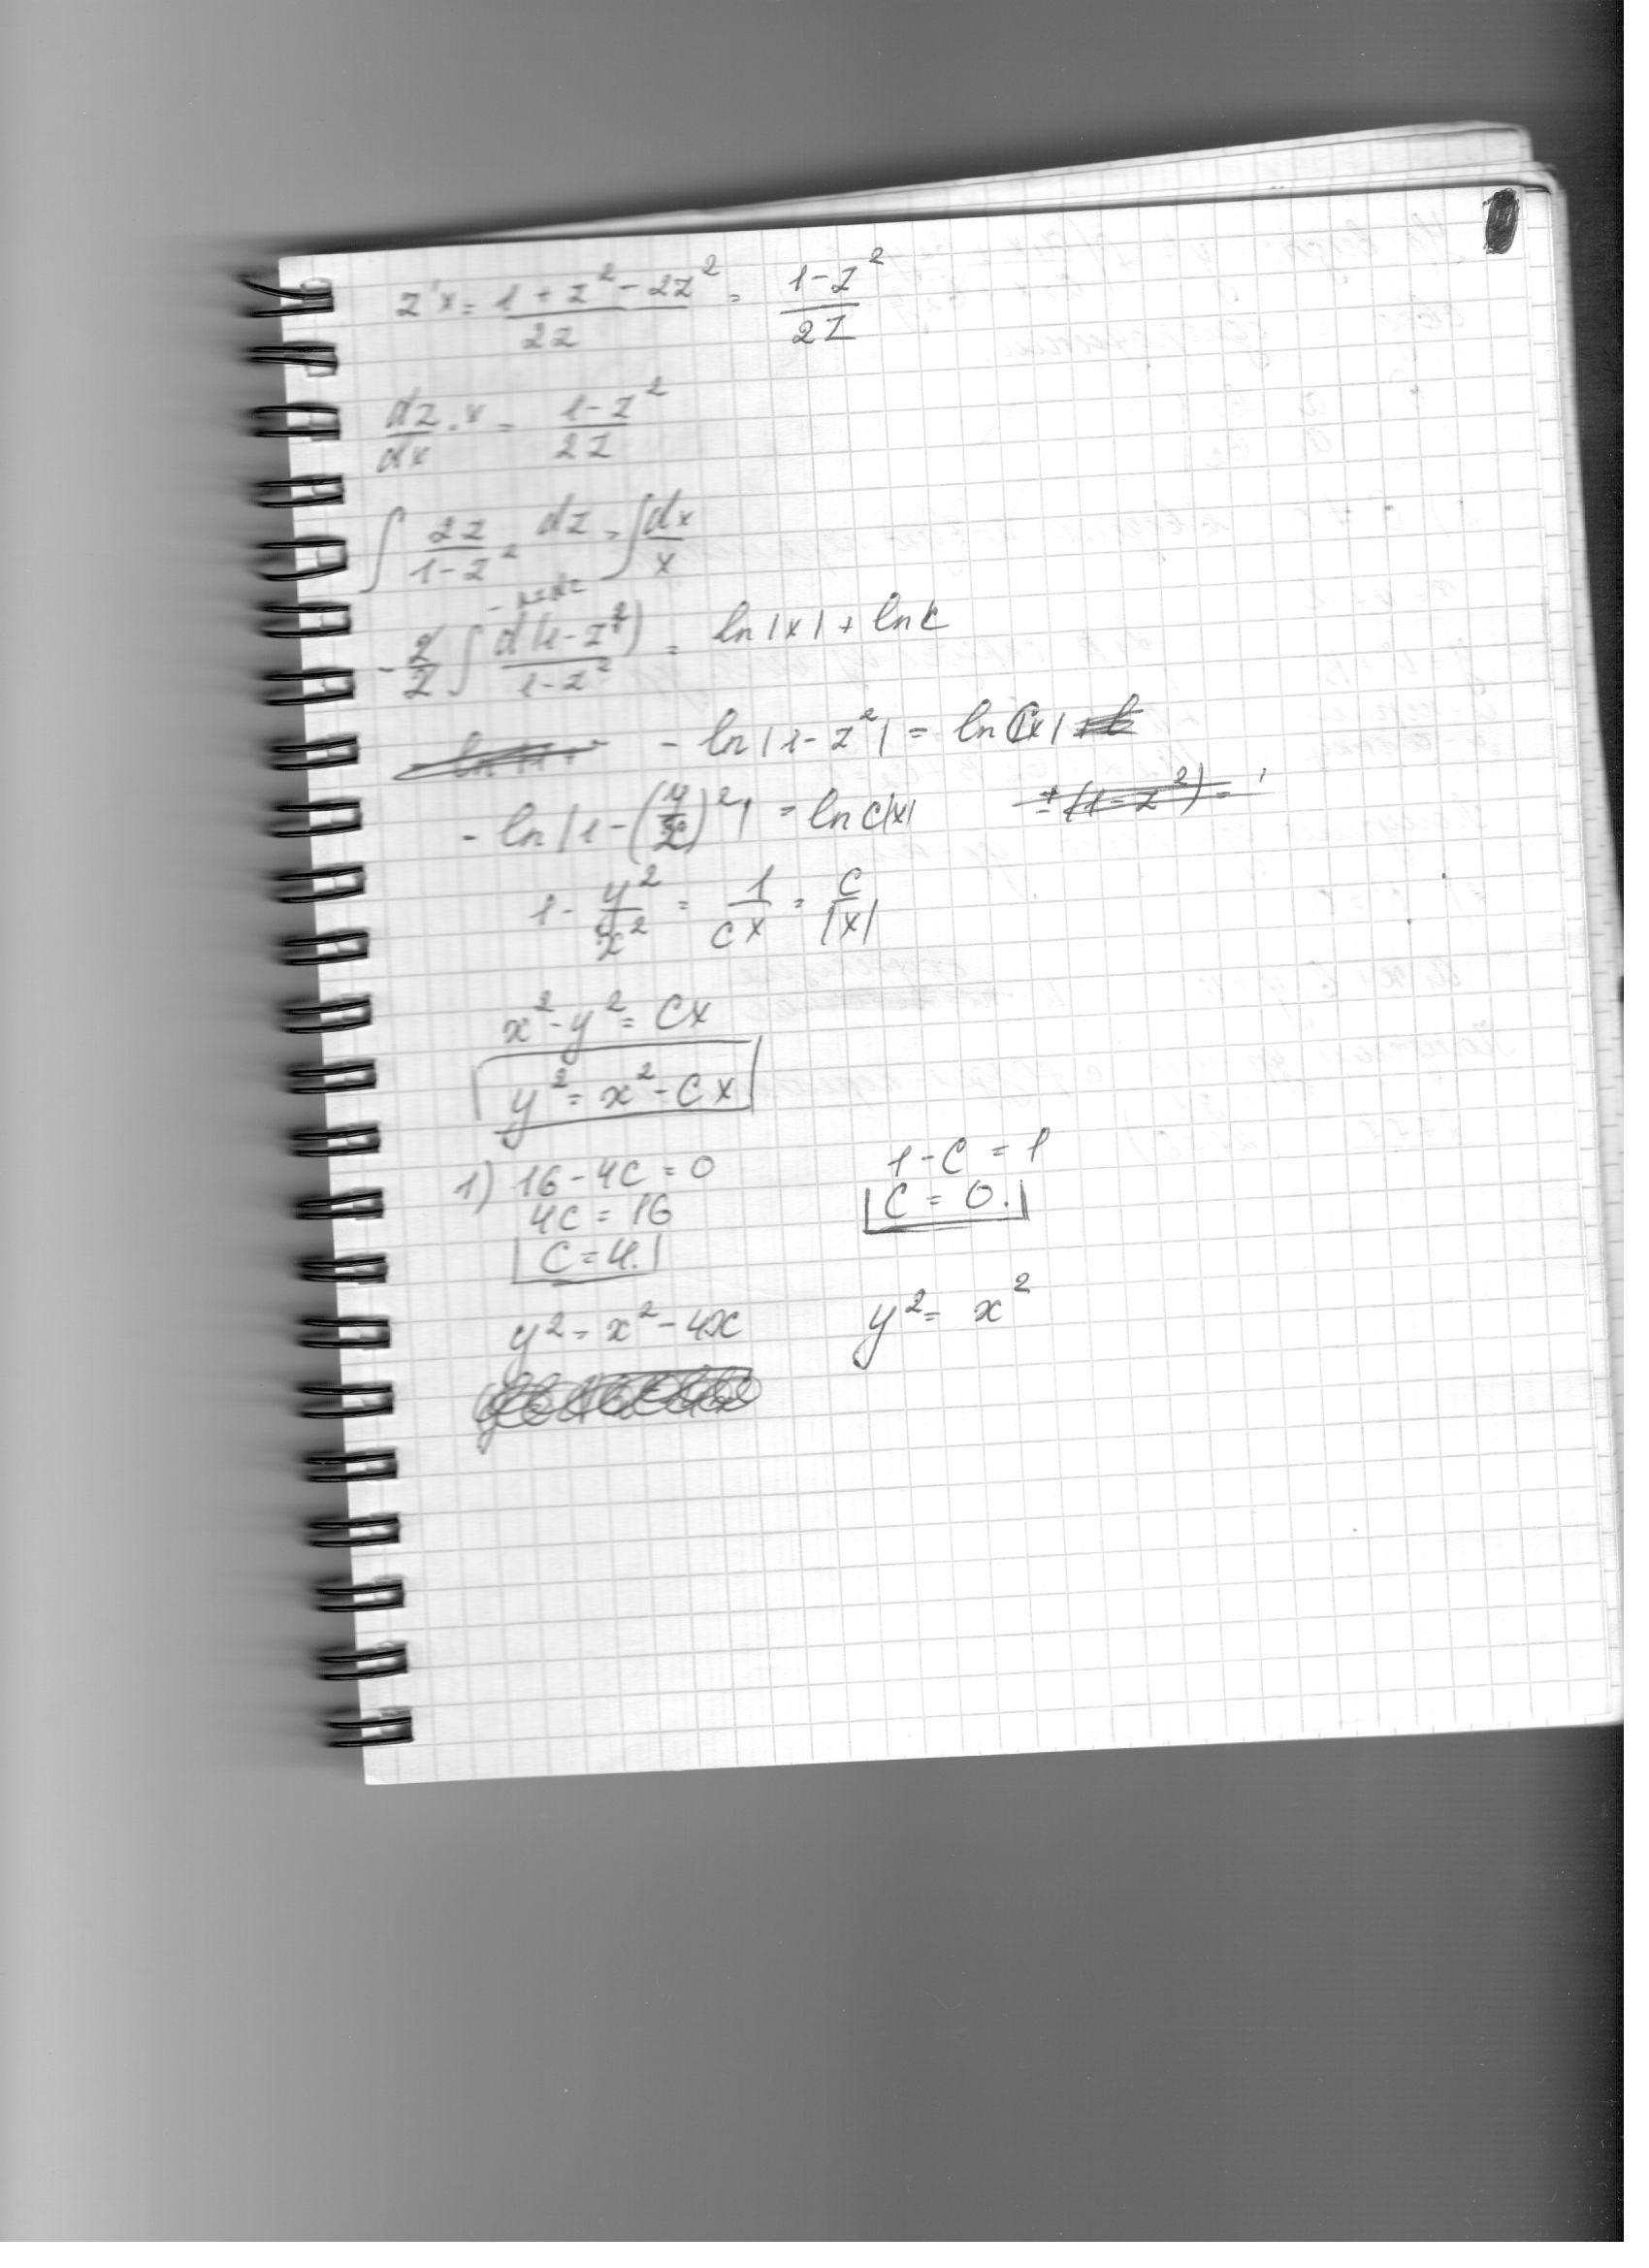 z'x = (1 + z² - 2z²)/(2z) = (1 - z²)/(2z)
dz/dx · x = (1 - z²)/(2z)
∫ 2z/(1 - z²) dz = ∫ dx/x
- 2/2 ∫ d(1 - z²)/(1 - z²) = ln|x| + ln c
- ln|1 - z²| = ln C|x|
- ln|1 - (y/x)²| = ln c|x|
1 - y²/x² = 1/(cx) = C/|x|
x² - y² = Cx
y² = x² - Cx
1) 16 - 4C = 0
4C = 16
C = 4.
y² = x² - 4x
1 - C = 1
C = 0.
y² = x²